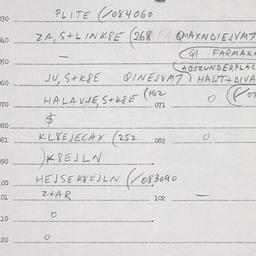 030 PLITE (✓084060
040 ZA, S+LINK8E (268 QMAXNDIEJVM7
— (QI FARMAK
(ABSZUNDERPLAC
060 JU, S+K8E QINEJVM7) HALT+DIVA
070 HALAVJE, S+K8E (162 071 0
080 $
081 KL8EJECAX (252 082 0
090 )K8EJLN
100 HEJSEK8EJLN (✓083090
101 Z+AR 102 —
110 0
120 0